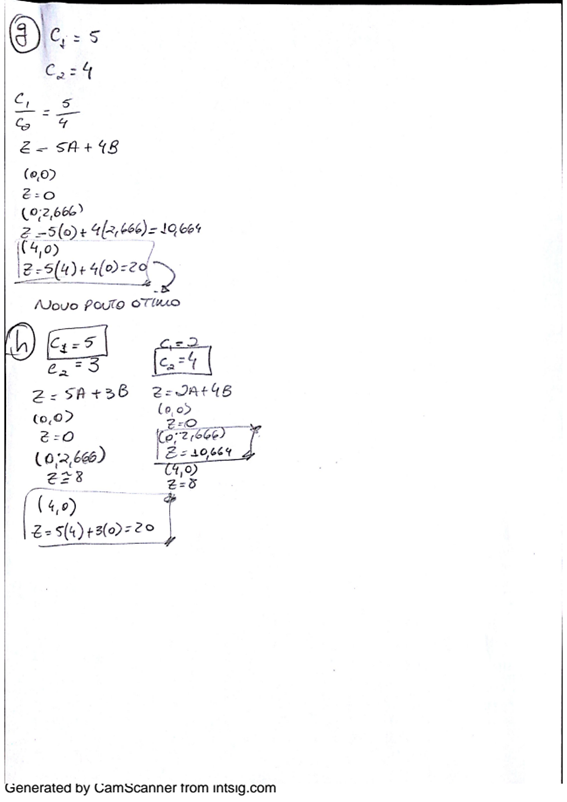 g C₁ = 5
C₂ = 4
C₁/C₂ = 5/4
Z = 5A + 4B
(0,0)
Z = 0
(0;2,666)
Z = 5(0) + 4(2,666) = 10,664
(4,0)
Z = 5(4) + 4(0) = 20
NOVO PONTO OTIMO
h C₁ = 5
C₂ = 3
Z = 5A + 3B
(0,0)
Z = 0
(0;2,666)
Z ≅ 8
(4,0)
Z = 5(4) + 3(0) = 20
C₁ = 2
C₂ = 4
Z = 2A + 4B
(0,0)
Z = 0
(0;2,666)
Z = 10,664
(4,0)
Z = 8
Generated by CamScanner from intsig.com